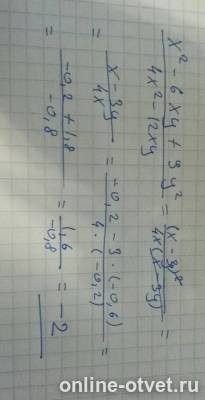 x² - 6xy + 9y² / 4x² - 12xy = (x - 3y)² / 4x(x - 3y) =
= x - 3y / 4x = -0,2 - 3 · (-0,6) / 4 · (-0,2) =
= -0,2 + 1,8 / -0,8 = 1,6 / -0,8 = -2
online-otvet.ru